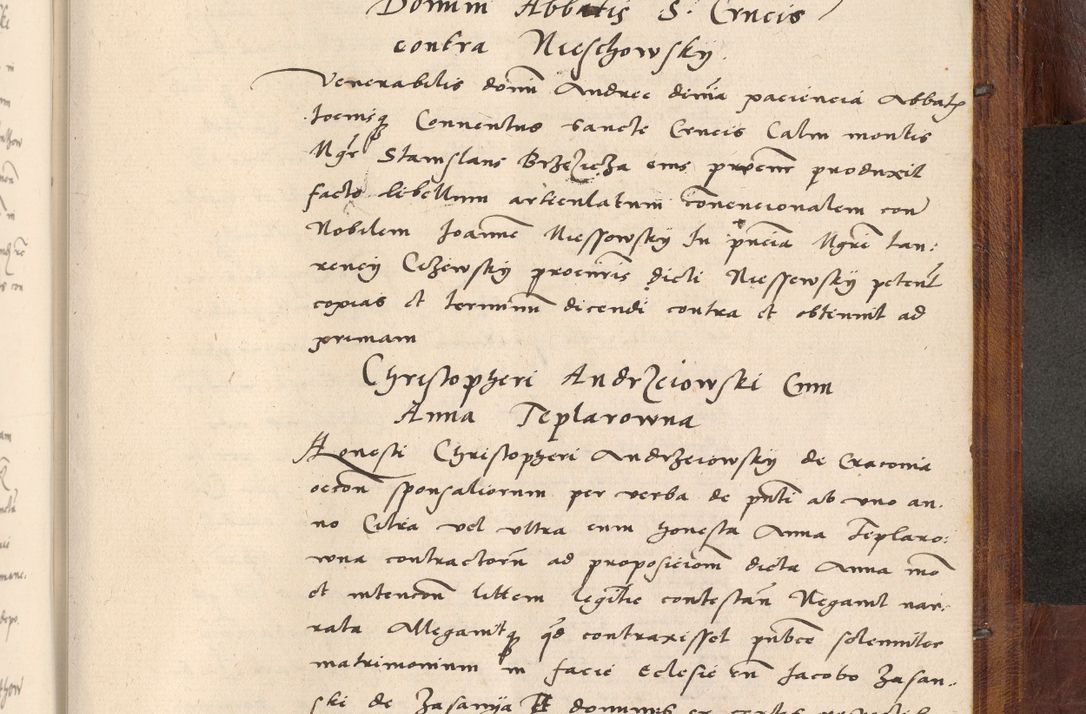 Domini Abbatis S. Crucis
contra Nieschowsky.
Venerabilis domni Andree divina paciencia Abbatis
tociusq Conventus sancte Crucis Calvi montis
Mgr Stanislaus Brzeziczza eius procur produxit
facto libellum articulatum convencionalem con
Nobilem Joannem Niessowsky In pncia Mgri Lau:
rencij Cczewskij procuris dicti Niessewskij petent
copias et terminum dicendi contra et obtinuit ad
primam
Christopheri Andrzeiowski Cum
Anna Teplarowna
Honesti Christopheri Andrzeiowskij de Cracovia
occon sponsaliorum per verba de pnti ab uno an.
no Citra vel ultra cum honesta Anna Teplaro:
wna contractorum ad proposicionem dicta Anna mo
et intencon littem legittie contestan Negavit nar.
rata Allegavitq qd contraxisset publice solemniter
matrimonium in facie Eclesie cum Jacobo Zasan..
ski de Zasanija